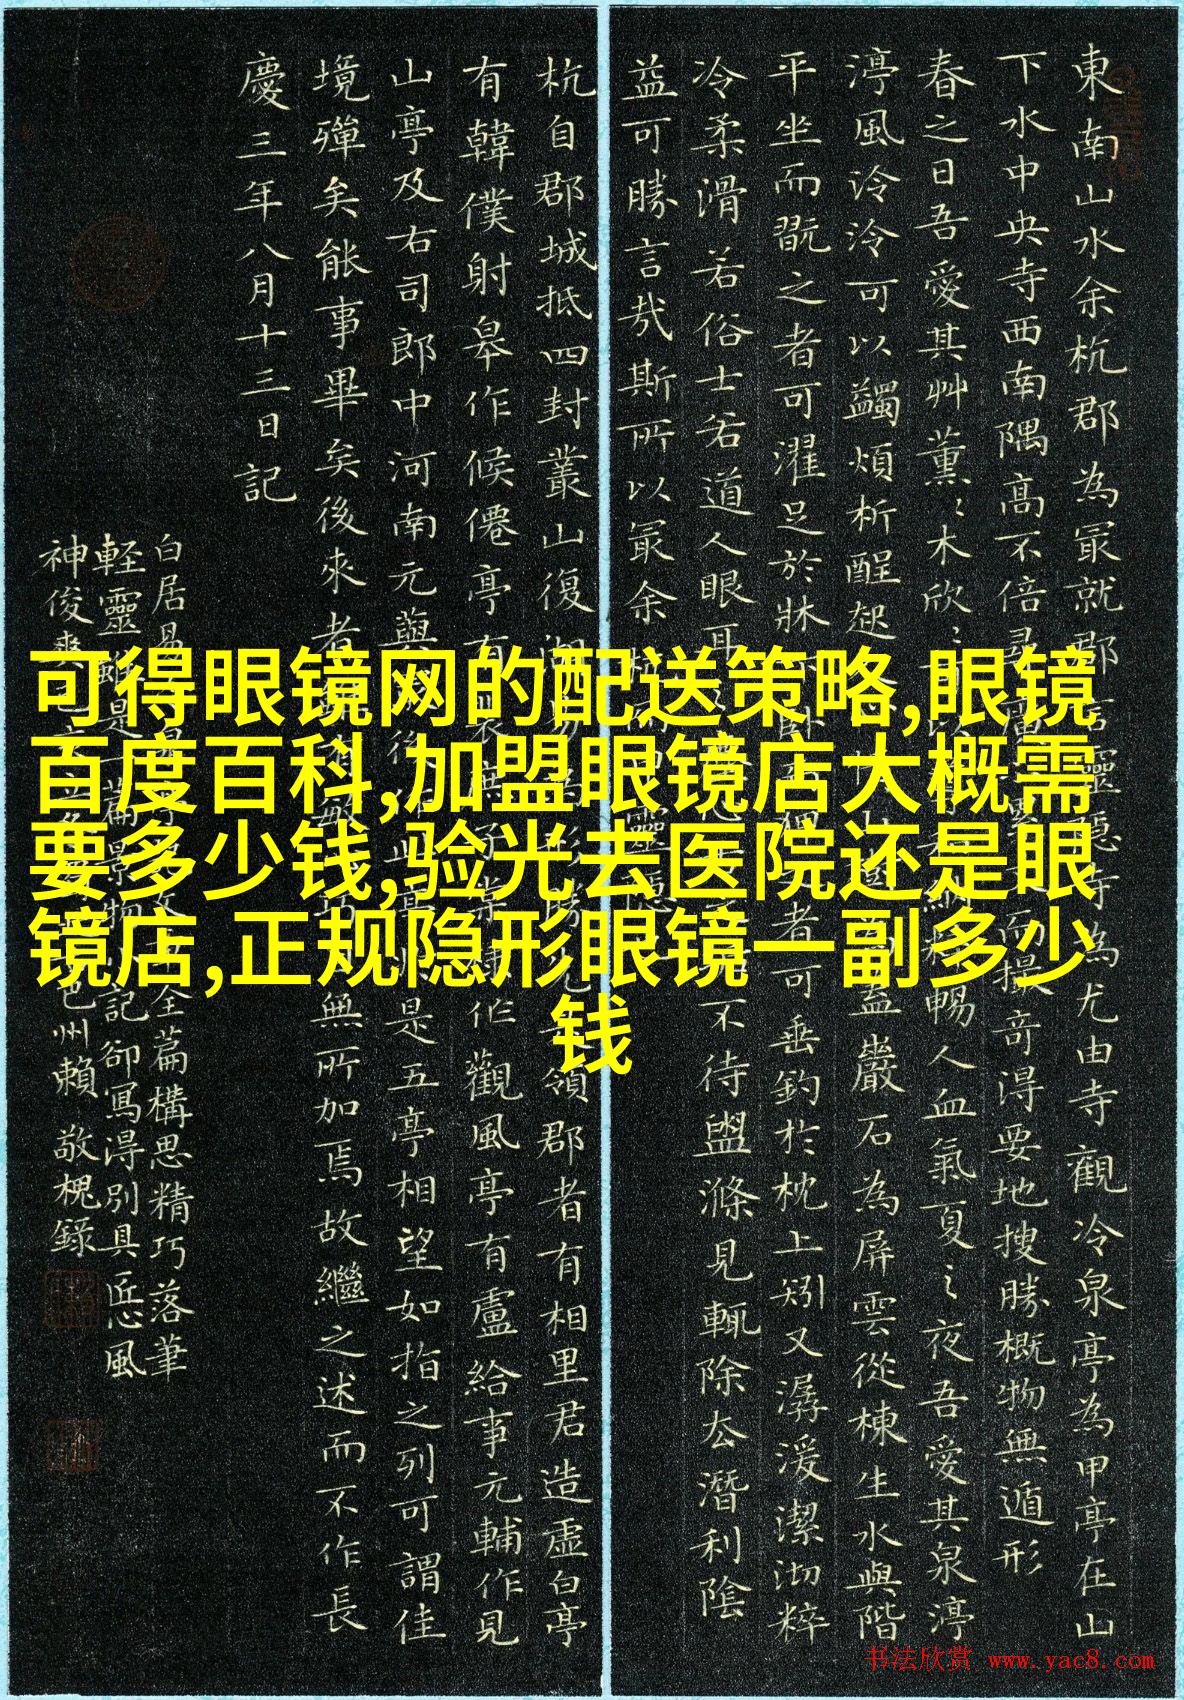 可得眼镜网的配送策略,眼镜
百度百科,加盟眼镜店大概需
要多少钱,验光去医院还是眼
镜店,正规隐形眼镜一副多少
钱
東南山水余杭郡為冣就郡言靈隱寺為尤由寺觀冷泉亭為甲亭在山
下水中央寺西南隅高不倍尋而撮奇得要地搜勝概物無遁形
春之日吾愛其艸薰〻木欣〻暢人血氣夏之夜吾愛其泉渟
渟風泠泠可以蠲煩析酲起山樹為蓋巖石為屏雲從棟生水與階
平坐而翫之者可濯足於牀者可垂釣於枕上矧又潺湲潔沏粹
冷柔滑若俗士若道人眼耳不待盥滌見輒除去潛利陰
益可勝言哉斯所以冣余杭靈隱
杭自郡城抵四封叢山復湖領郡者有相里君造虛白亭
有韓僕射皋作候僊亭有裴庶子作觀風亭有盧給事元輔作見
山亭及右司郎中河南元藇後作此是五亭相望如指之列可謂佳
境殫矣能事畢矣後來者無所加焉故繼之述而不作長
慶三年八月十三日記
白居易全篇構思精巧落筆
軽靈雖是一篇景物記卻寫得別具匠心風
神俊爽邑州賴敬槐錄
书法欣赏 www.yac8.com